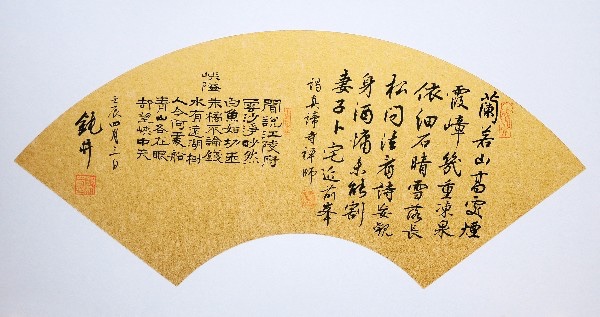 蘭若山高處煙
霞嶂幾重凍泉
依細石晴雪落長
松問法看詩妄觀
身酒慵未能割
妻子卜宅近前峯
謁真諦寺禪師
峽隘
聞說江陵府
雲沙淨眇然
白魚如切玉
朱橘不論錢
水有遠湖樹
人今何處船
青山各在眼
却望峽中天
壬辰四月三日
鈍井